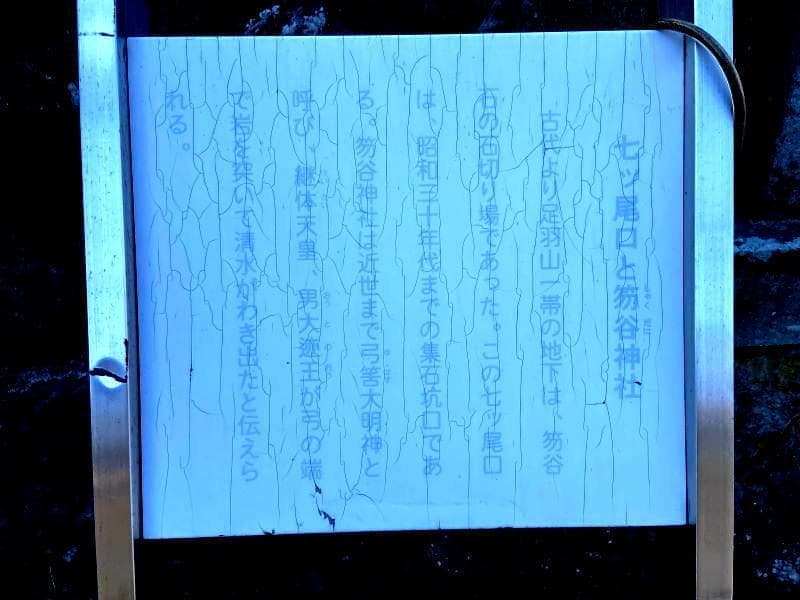 七ッ尾口と笏谷神社
古代より足羽山一帯の地下は、笏谷
石の石切り場であった。この七ッ尾口
は、昭和三十年代までの集石坑口であ
る。笏谷神社は近世まで弓筈大明神と
呼び、継体天皇、男大迩王が弓の端
で岩を突いて清水がわき出たと伝えら
れる。